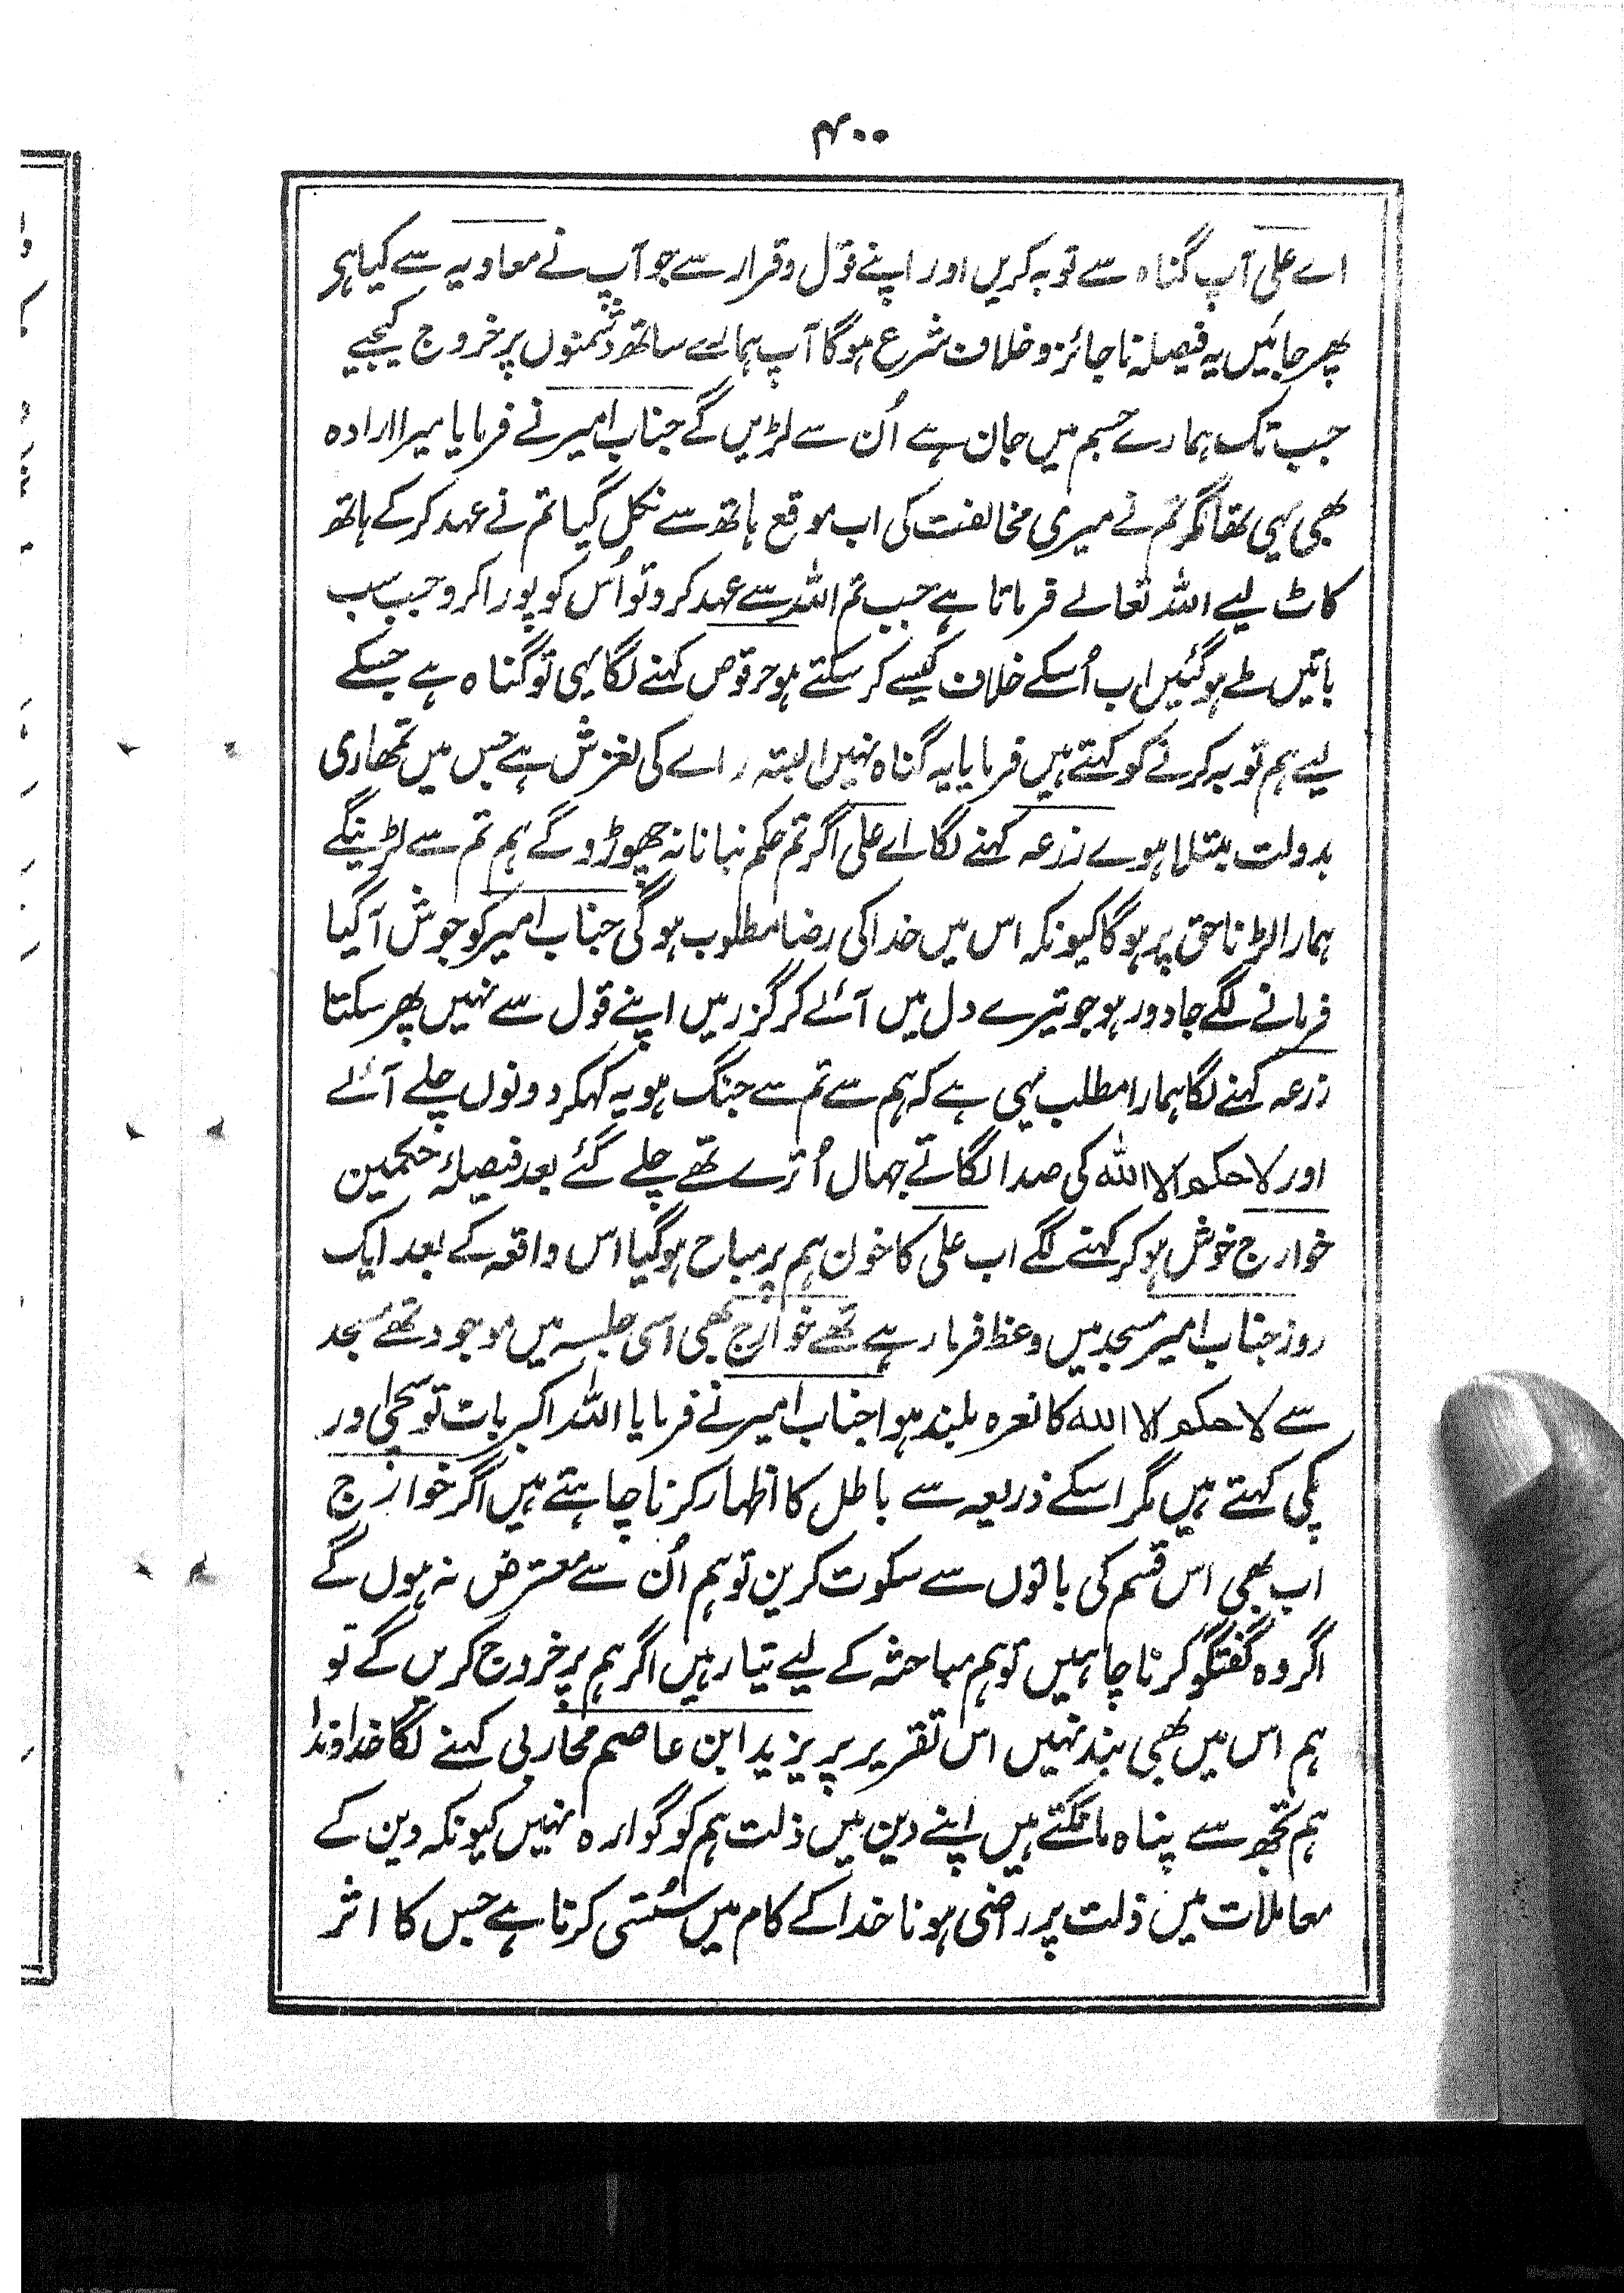 ۴۰۰
اے علی آپ گناہ سے توبہ کریں اور اپنے قول و قرار سے جو آپ نے معاویہ سے کیا ہی
پھر جائیں یہ فیصلہ ناجائز و خلاف شرع ہوگا آپ ہمارے ساتھ دشمنوں پر خروج کیجیے
جب تک ہمارے جسم میں جان ہے اُن سے لڑیں گے جناب امیر نے فرمایا میرا ارادہ
بھی یہی تھا مگر تم نے میری مخالفت کی اب موقع ہاتھ سے نکل گیا تم نے عہد کر کے ہاتھ
کاٹ لیے اللہ تعالے فرماتا ہے جب تم اللہ سے عہد کرو تو اُس کو پورا کرو جب سب
باتیں طے ہو گئیں اب اُسکے خلاف کیسے کر سکتے ہو حرقوص کہنے لگا یہی تو گناہ ہے جسکے
لیے ہم توبہ کرنے کو کہتے ہیں فرمایا یہ گناہ نہیں البتہ راے کی لغزش ہے جس میں تمھاری
بدولت مبتلا ہوے زرعہ کہنے لگا اے علی اگر تم حکم بنانا نہ چھوڑو گے ہم تم سے لڑینگے
ہمارا لڑنا حق پر ہوگا کیونکہ اس میں خدا کی رضا مطلوب ہوگی جناب امیر کو جوش آگیا
فرمانے لگے جا دور ہو جو تیرے دل میں آئے کر گزر میں اپنے قول سے نہیں پھر سکتا
زرعہ کہنے لگا ہمارا مطلب یہی ہے کہ ہم سے تم سے جنگ ہو یہ کہکر دونوں چلے آئے
اور لا حکم الا اللہ کی صدا لگاتے جہاں اُترے تھے چلے گئے بعد فیصلۂ حکمین
خوارج خوش ہو کر کہنے لگے اب علی کا خون ہم پر مباح ہوگیا اس واقعہ کے بعد ایک
روز جناب امیر مسجد میں وعظ فرما رہے تھے خوارج بھی اسی جلسہ میں موجود تھے مسجد
سے لا حکم الا اللہ کا نعرہ بلند ہوا جناب امیر نے فرمایا اللہ اکبر بات تو سچی اور
پکی کہتے ہیں مگر اسکے ذریعہ سے باطل کا اظہار کرنا چاہتے ہیں اگر خوارج
اب بھی اس قسم کی باتوں سے سکوت کرین تو ہم اُن سے معترض نہ ہوں گے
اگر وہ گفتگو کرنا چاہیں تو ہم مباحثہ کے لیے تیار ہیں اگر ہم پر خروج کریں گے تو
ہم اس میں بھی بند نہیں اس تقریر پر یزید ابن عاصم محاربی کہنے لگا خداوندا
ہم تجھ سے پناہ مانگتے ہیں اپنے دین میں ذلت ہم کو گوارہ نہیں کیونکہ دین کے
معاملات میں ذلت پر راضی ہونا خدا کے کام میں سُستی کرنا ہے جس کا اثر